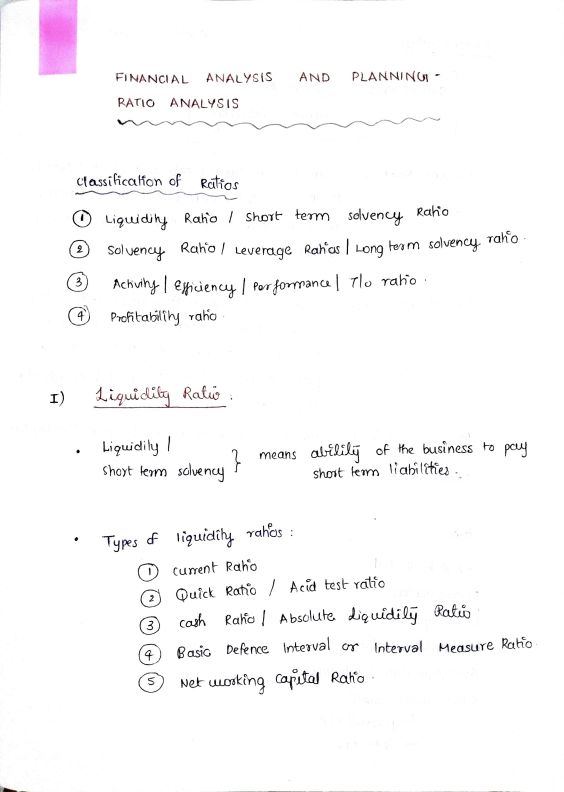 FINANCIAL ANALYSIS AND PLANNING -
RATIO ANALYSIS
Classification of Ratios
① Liquidity Ratio / Short term solvency Ratio
② Solvency Ratio / Leverage Ratios / Long term solvency ratio.
③ Activity / Efficiency / Performance / T/o ratio.
④ Profitability ratio.
I) Liquidity Ratio :
• Liquidity / Short term solvency } means ability of the business to pay
short term liabilities.
• Types of liquidity ratios :
① Current Ratio
② Quick Ratio / Acid test ratio
③ Cash Ratio / Absolute Liquidity Ratio.
④ Basic Defence Interval or Interval Measure Ratio.
⑤ Net working Capital Ratio.